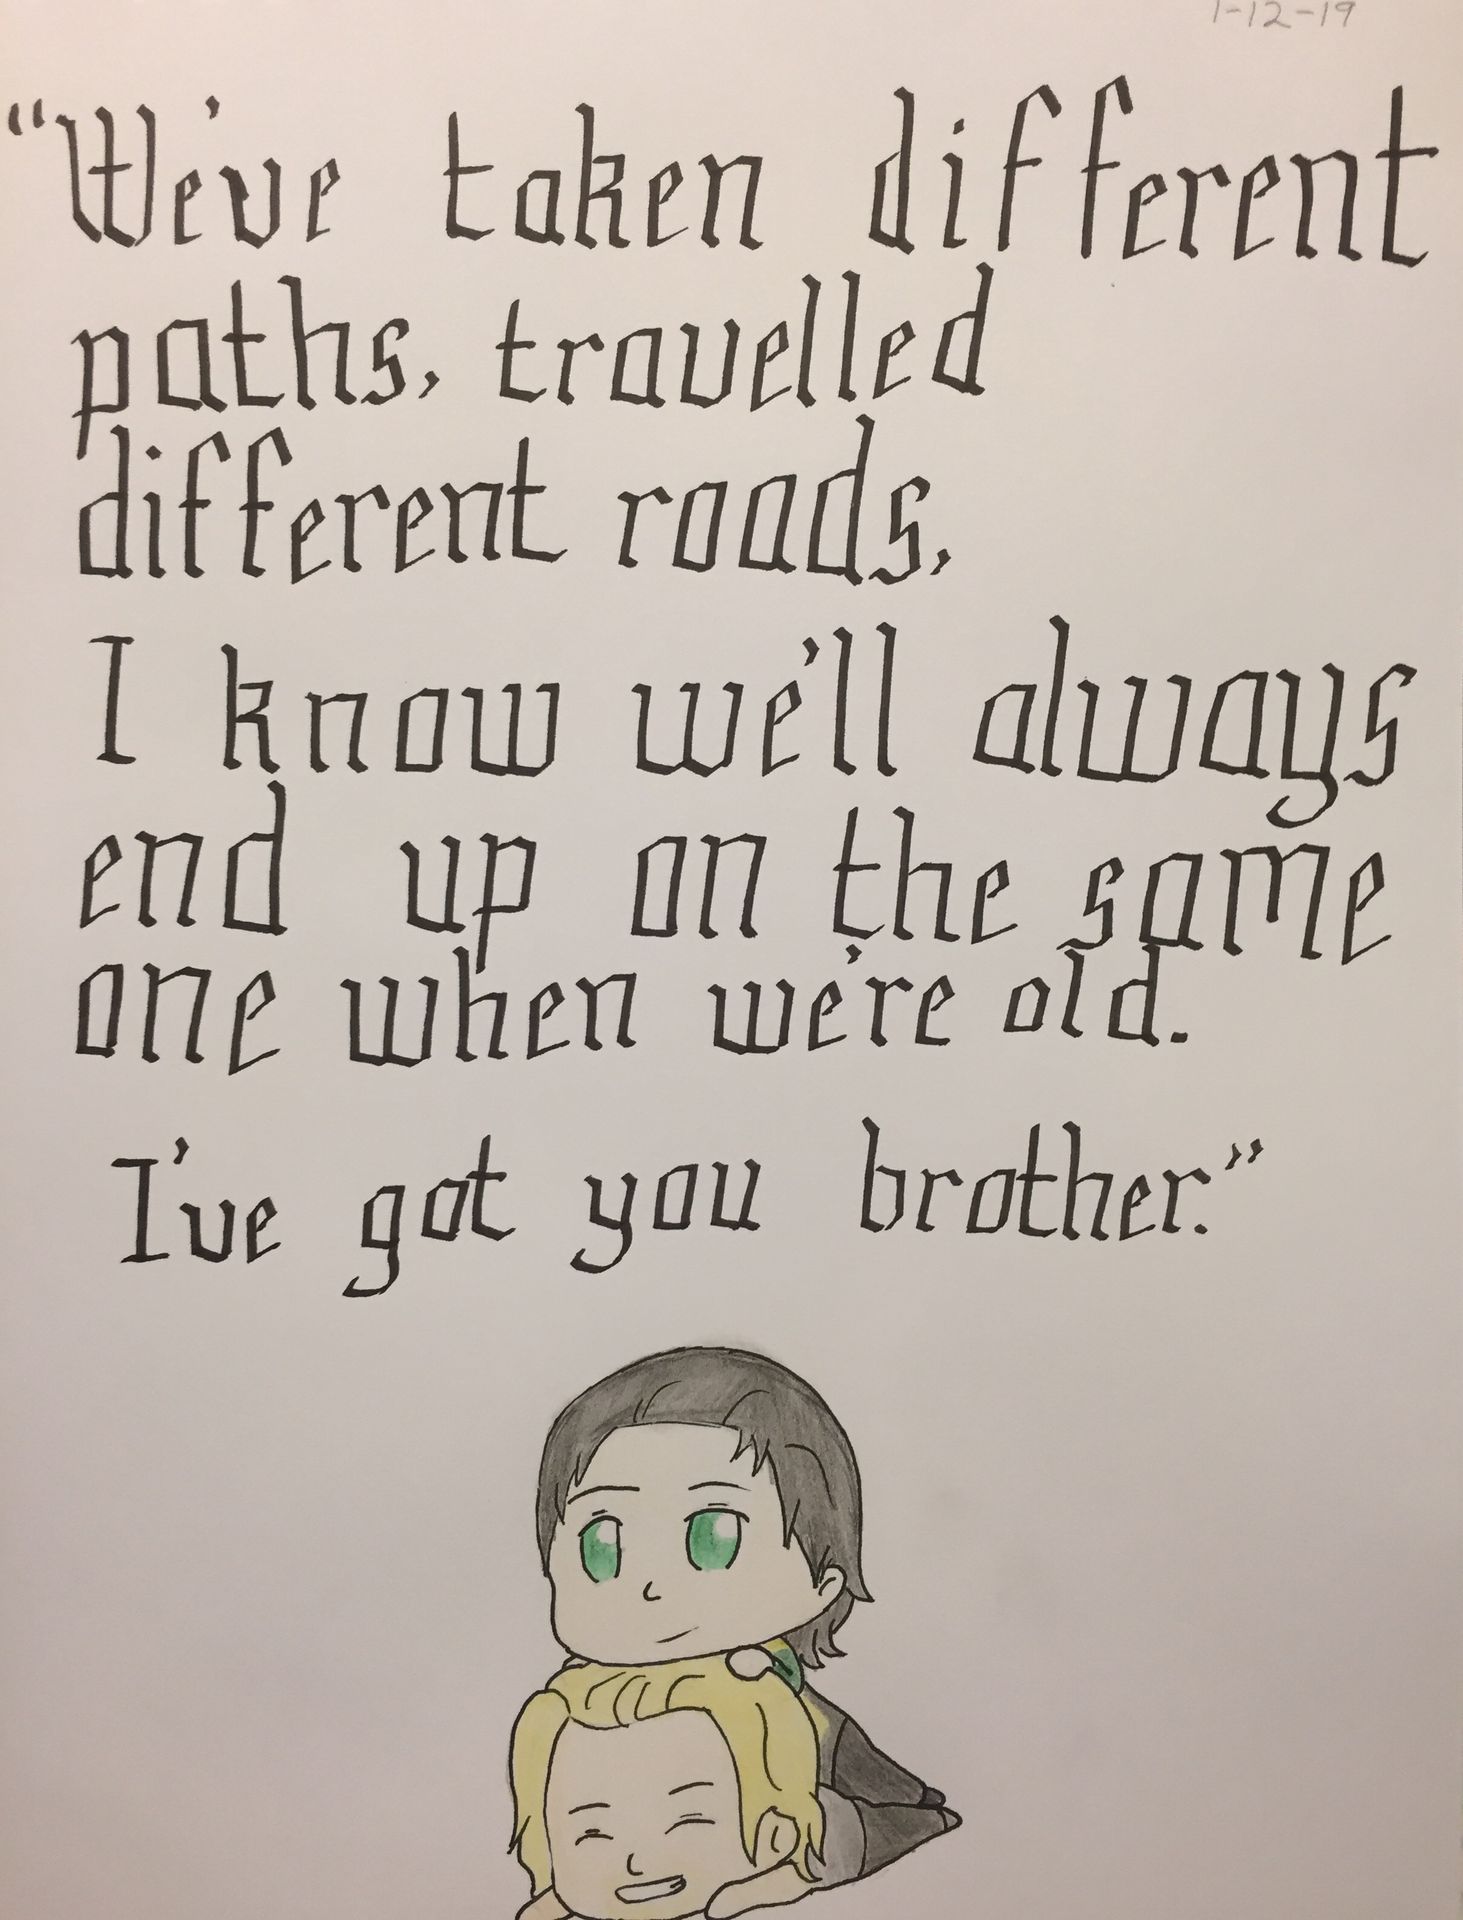 1-12-19
"We've taken different
paths, travelled
different roads,
I know we'll always
end up on the same
one when we're old.
I've got you brother."